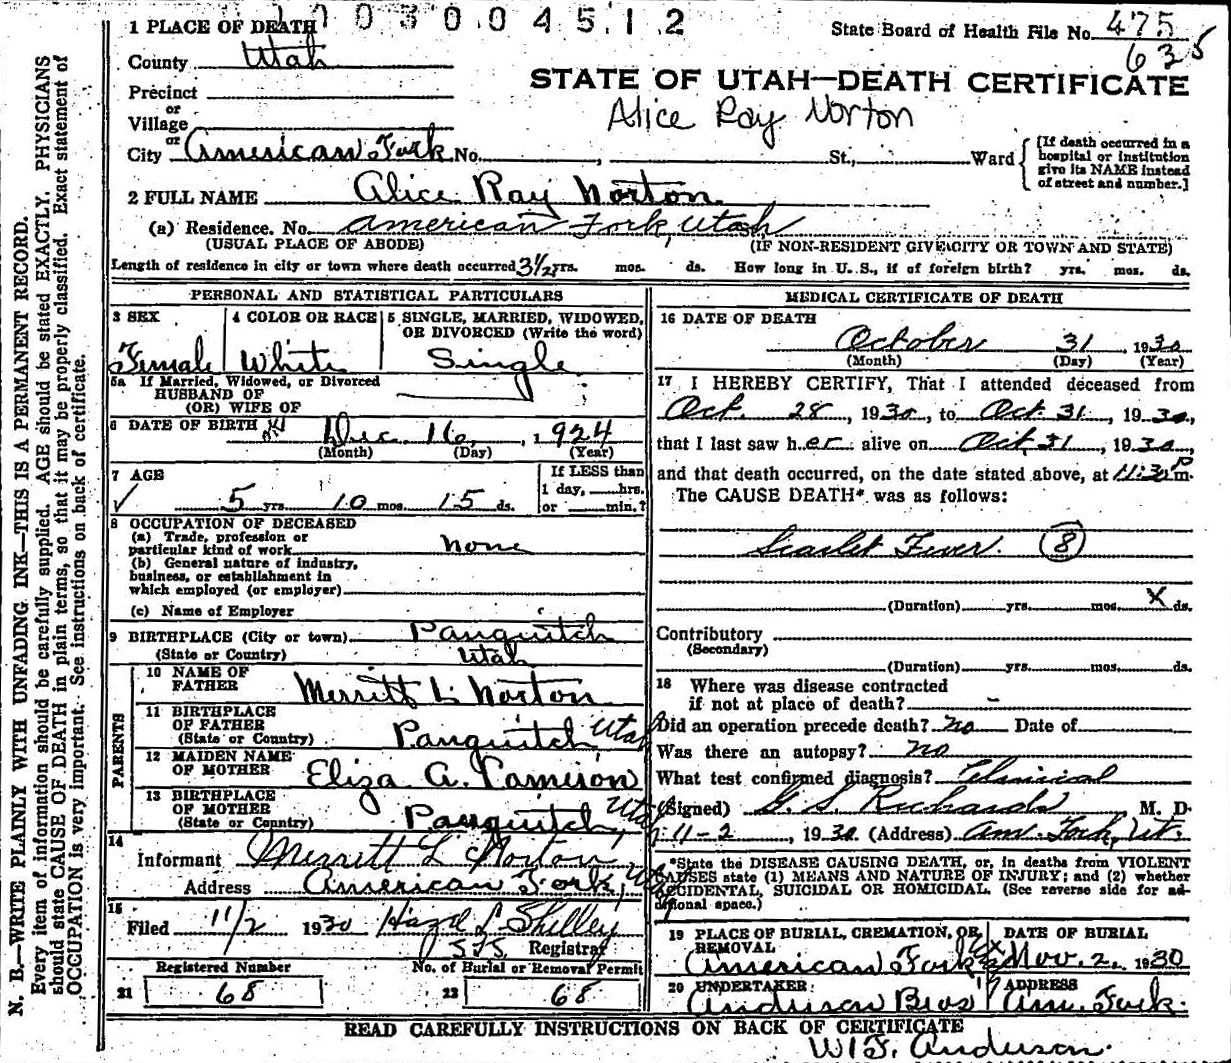 1003004512
1 PLACE OF DEATH
State Board of Health File No. 475
635
County Utah
STATE OF UTAH—DEATH CERTIFICATE
Precinct
or
Village
Alice Ray Norton
or
City American Fork No. , St., Ward
[If death occurred in a
hospital or institution
give its NAME instead
of street and number.]
2 FULL NAME Alice Ray Norton
(a) Residence. No. American Fork, Utah
(USUAL PLACE OF ABODE) (IF NON-RESIDENT GIVE CITY OR TOWN AND STATE)
Length of residence in city or town where death occurred 3 1/2 yrs. mos. ds. How long in U. S., if of foreign birth? yrs. mos. ds.
PERSONAL AND STATISTICAL PARTICULARS
3 SEX 4 COLOR OR RACE 5 SINGLE, MARRIED, WIDOWED,
OR DIVORCED (Write the word)
Female White Single
5a If Married, Widowed, or Divorced
HUSBAND OF
(OR) WIFE OF
6 DATE OF BIRTH Dec. 16, 1924
(Month) (Day) (Year)
7 AGE If LESS than
1 day, hrs.
5 yrs. 10 mos. 15 ds. or min.?
8 OCCUPATION OF DECEASED
(a) Trade, profession or
particular kind of work none
(b) General nature of industry,
business, or establishment in
which employed (or employer)
(c) Name of Employer
9 BIRTHPLACE (City or town) Panguitch
(State or Country) Utah
PARENTS
10 NAME OF
FATHER Merritt L. Norton
11 BIRTHPLACE
OF FATHER
(State or Country) Panguitch Utah
12 MAIDEN NAME
OF MOTHER Eliza A. Cameron
13 BIRTHPLACE
OF MOTHER
(State or Country) Panguitch, Utah
14
Informant Merritt L Norton
Address American Fork,
15
Filed 11/2 1930 Hazel L Shelley
Registrar
Registered Number No. of Burial or Removal Permit
21 68 22 68
MEDICAL CERTIFICATE OF DEATH
16 DATE OF DEATH
October 31, 1930
(Month) (Day) (Year)
17 I HEREBY CERTIFY, That I attended deceased from
Oct. 28, 1930, to Oct. 31, 1930,
that I last saw her alive on Oct. 31, 1930,
and that death occurred, on the date stated above, at 11:30 P m.
The CAUSE DEATH* was as follows:
Scarlet Fever. 8
(Duration) yrs. mos. X ds.
Contributory
(Secondary)
(Duration) yrs. mos. ds.
18 Where was disease contracted
if not at place of death? -
Did an operation precede death? no Date of
Was there an autopsy? no
What test confirmed diagnosis? Clinical
(Signed) G. S. Richards M. D.
11-2, 1930 (Address) Am. Fork, Ut.
*State the DISEASE CAUSING DEATH, or, in deaths from VIOLENT
CAUSES state (1) MEANS AND NATURE OF INJURY; and (2) whether
ACCIDENTAL, SUICIDAL OR HOMICIDAL. (See reverse side for additional space.)
19 PLACE OF BURIAL, CREMATION, OR
REMOVAL DATE OF BURIAL
American Fork Nov. 2, 1930
20 UNDERTAKER ADDRESS
Anderson Bros Am. Fork.
READ CAREFULLY INSTRUCTIONS ON BACK OF CERTIFICATE
Anderson.
N. B.—WRITE PLAINLY WITH UNFADING INK—THIS IS A PERMANENT RECORD.
Every item of information should be carefully supplied. AGE should be stated EXACTLY. PHYSICIANS
should state CAUSE OF DEATH in plain terms, so that it may be properly classified. Exact statement of
OCCUPATION is very important. See instructions on back of certificate.